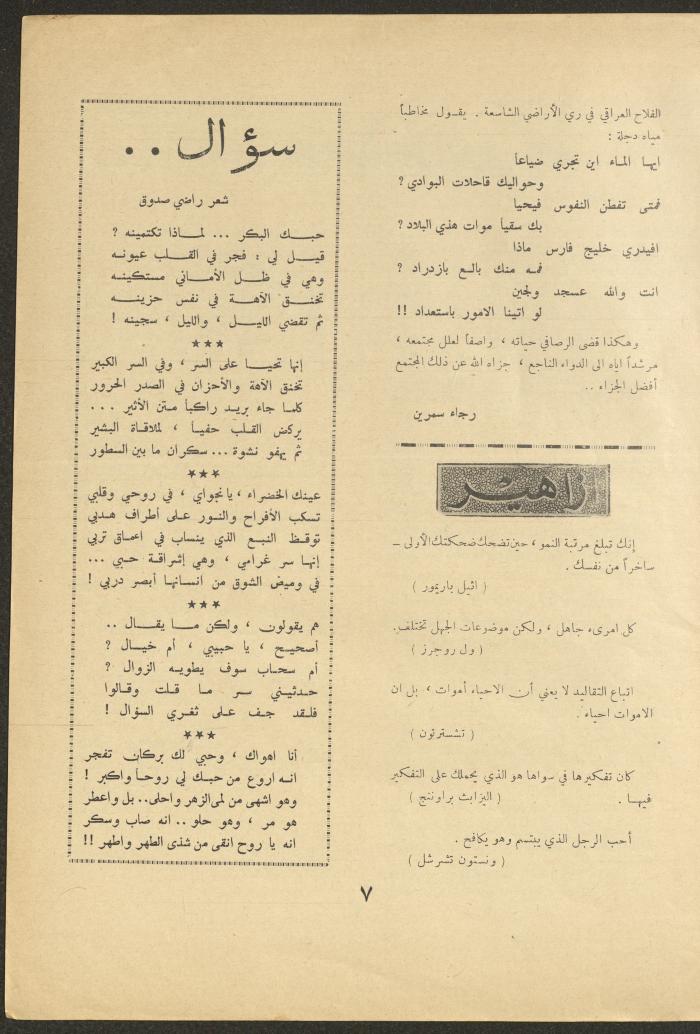 الفلاح العراقي في ري الأراضي الشاسعة . يقـول مخاطباً
مياه دجلة :
ايها المـاء اين تجري ضياعا
وحواليك قاحلات البوادي ؟
فمتى تفطن النفوس فيحيا
بك سقياً موات هذي البلاد ؟
افيدري خليج فارس ماذا
فمـه منك بالـع بازدراد ؟
انت والله عسجد ولجين
لو اتينا الامور باستعداد !!
وهكذا قضى الرصافي حياته ، واصفاً لعلل مجتمعه ،
مرشداً اياه الى الدواء الناجع ، جزاه الله عن ذلك المجتمع
أفضل الجزاء ..
رجاء سمرين
زاهير
إنك تبلغ مرتبة النمو ، حين تضحك ضحكتك الأولى –
ساخراً من نفسك .
( اثيل باريمور )
كل امرىء جاهل ، ولكن موضوعات الجهل تختلف .
( ول روجرز )
اتباع التقاليد لا يعني أن الاحياء أموات ، بل ان
الاموات احياء .
( تشسترتون )
كان تفكيرها في سواها هو الذي يحملك على التفكير
فيهـا . ( اليزابث براوننج )
أحب الرجل الذي يبتسم وهو يكافح .
( ونستون تشرشل )
سؤال ..
شعر راضي صدوق
حبـك البكر ... لمـاذا تكتمينه ؟
قيـل لي : فجر في القـلب عيونـه
وهي في ظـل الأمـاني مستكينـه
تخنـق الآهـة في نفس حزينـه
ثم تقضي الليـل ، والليل ، سجينه !
★★★
إنها تحيـا على السر ، وفي السر الكبير
تخنق الآهة والأحزان في الصدر الحرور
كلمـا جاء بريـد راكبـاً متن الأثير ...
يركض القلب حفيـاً ، لملاقاة البشير
ثم يهفو نشوة ... سكران ما بين السطور
★★★
عينك الخضراء ، يا نجواي ، في روحي وقلبي
تسكب الأفراح والنور على أطراف هدبي
توقـظ النبـع الذي ينساب في اعماق تربي
إنهـا سر غرامي ، وهي إشراقـة حبي ...
في وميض الشوق من انسانها أبصر دربي !
★★★
هم يقولون ، ولكن مـا يقـال ..
أصحيـح ، يا حبيبي ، أم خيـال ؟
أم سحاب سوف يطويـه الزوال ؟
حدثيـني سر ما قلت وقـالوا
فلـقد جـف على ثغـري السؤال !
★★★
أنا اهواك ، وحبي لك بركان تفجر
انـه اروع من حبـك لي روحـاً واكبر !
وهو اشهى من لمى الزهر واحلى.. بل واعطر
هو مر ، وهو حلو .. انه صاب وسكر
انه يا روح انقى من شذى الطهر واطهر !!
٧